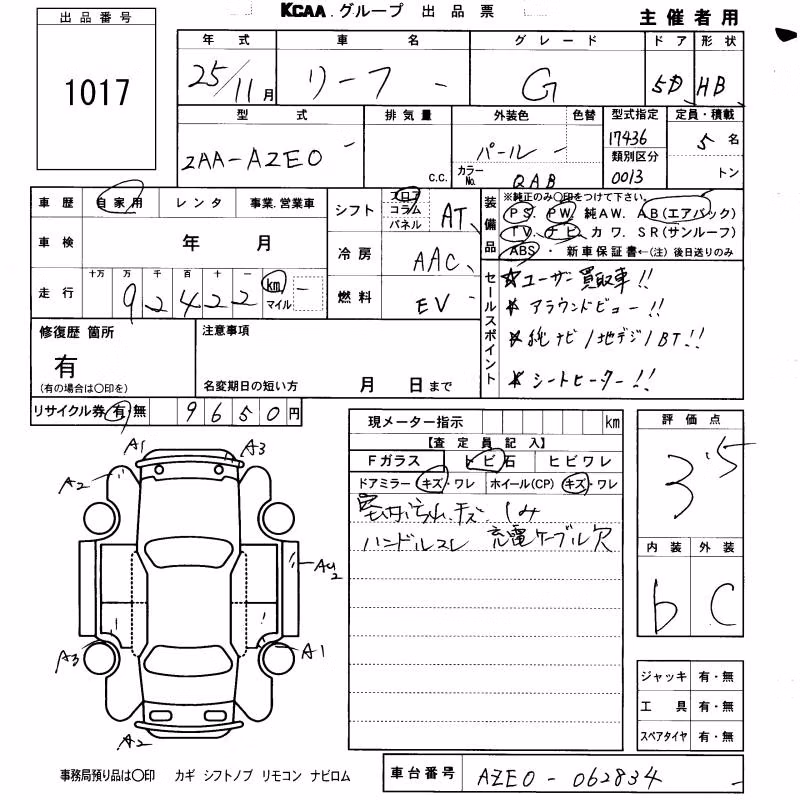 KCAA.グループ 出品票
主催者用
出品番号
1017
年式 車名 グレード ドア 形状
25/11月 リーフ - G 5D HB
型式 排気量 外装色 色替 型式指定 定員・積載
ZAA-AZE0 - c.c. パール - 17436 5名
カラーNo. QAB 類別区分 0013 トン
車歴 自家用 レンタ 事業.営業車
車検 年 月
走行 十万 万 千 百 十 一
92422 km マイル -
シフト フロア コラム パネル AT
冷房 AAC
燃料 EV -
装備品 ※純正のみ〇印をつけて下さい。
PS. PW. 純AW. AB(エアバック)
TV. ナビ. カワ. SR(サンルーフ)
ABS ・ 新車保証書←(注)後日送りのみ
セールスポイント
★ユーザー買取車!!
★アラウンドビュー!!
★純ナビ/地デジ/BT!!
★シートヒーター!!
修復歴 箇所
有
(有の場合は〇印を)
注意事項
名変期日の短い方 月 日まで
リサイクル券 有・無 9650円
現メーター指示 km
【査定員記入】
Fガラス トビ石 ヒビワレ
ドアミラー キズ・ワレ ホイール(CP) キズ・ワレ
キズ、しみ
ハンドルスレ 充電ケーブル欠
評価点
3.5
内装 外装
b C
A1 A3
A2
AU2
A3 A1
A2
ジャッキ 有・無
工具 有・無
スペアタイヤ 有・無
事務局預り品は〇印 カギ シフトノブ リモコン ナビロム
車台番号 AZE0-062834